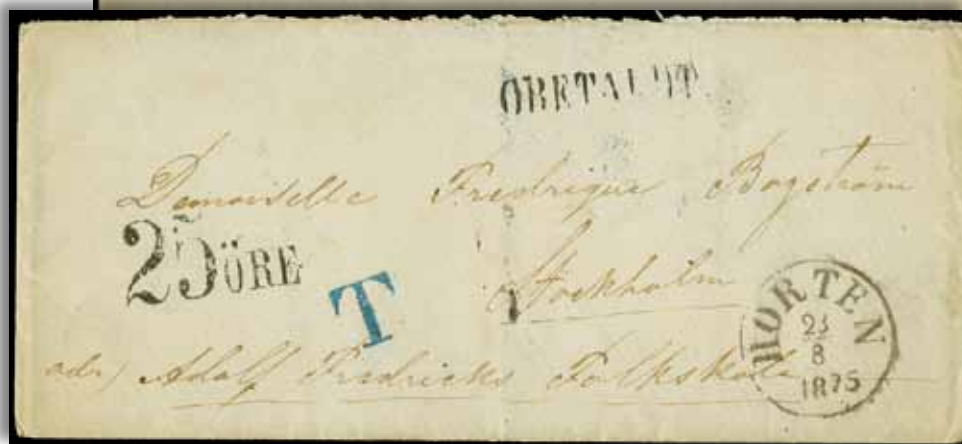 OBETALDT.
Demoiselle Fredrique Bogström
25 ÖRE
T
Stockholm
HORTEN
23
8
1875
adr) Adolf Fredricks Folkskola